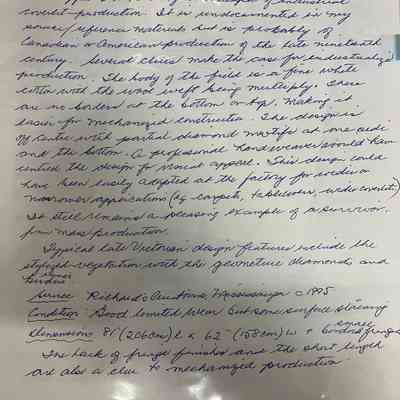 coverlet production. It is undocumented in my
source/reference materials but is probably of
Canadian or American production of the late nineteenth
century. Several clues make the case for industrialized
production. The body of the field is a fine white
cotton with the wool weft being multi-ply. There
are no borders at the bottom or top. Making it
easier for mechanized construction. The design is
off centre with partial diamond motifs at one side
and the bottom. A professional handweaver would have
centred the design for visual appeal. This design could
have been easily adapted at the factory for wider or
narrower applications (eg carpets, tablecover, wide coverlet)
It still remains a pleasing example of a survivor
from mass production.
Typical late Victorian design features include the
stylized vegetation with the geometric diamonds and
borders
Source Richard's Auctions, Mississauga c 1995
Condition Good limited wear but some surface staining
Dimensions 81" (206cm) l x 62" (158cm) w +
The lack of fringe finishes and the short length
are also a clue to mechanized production